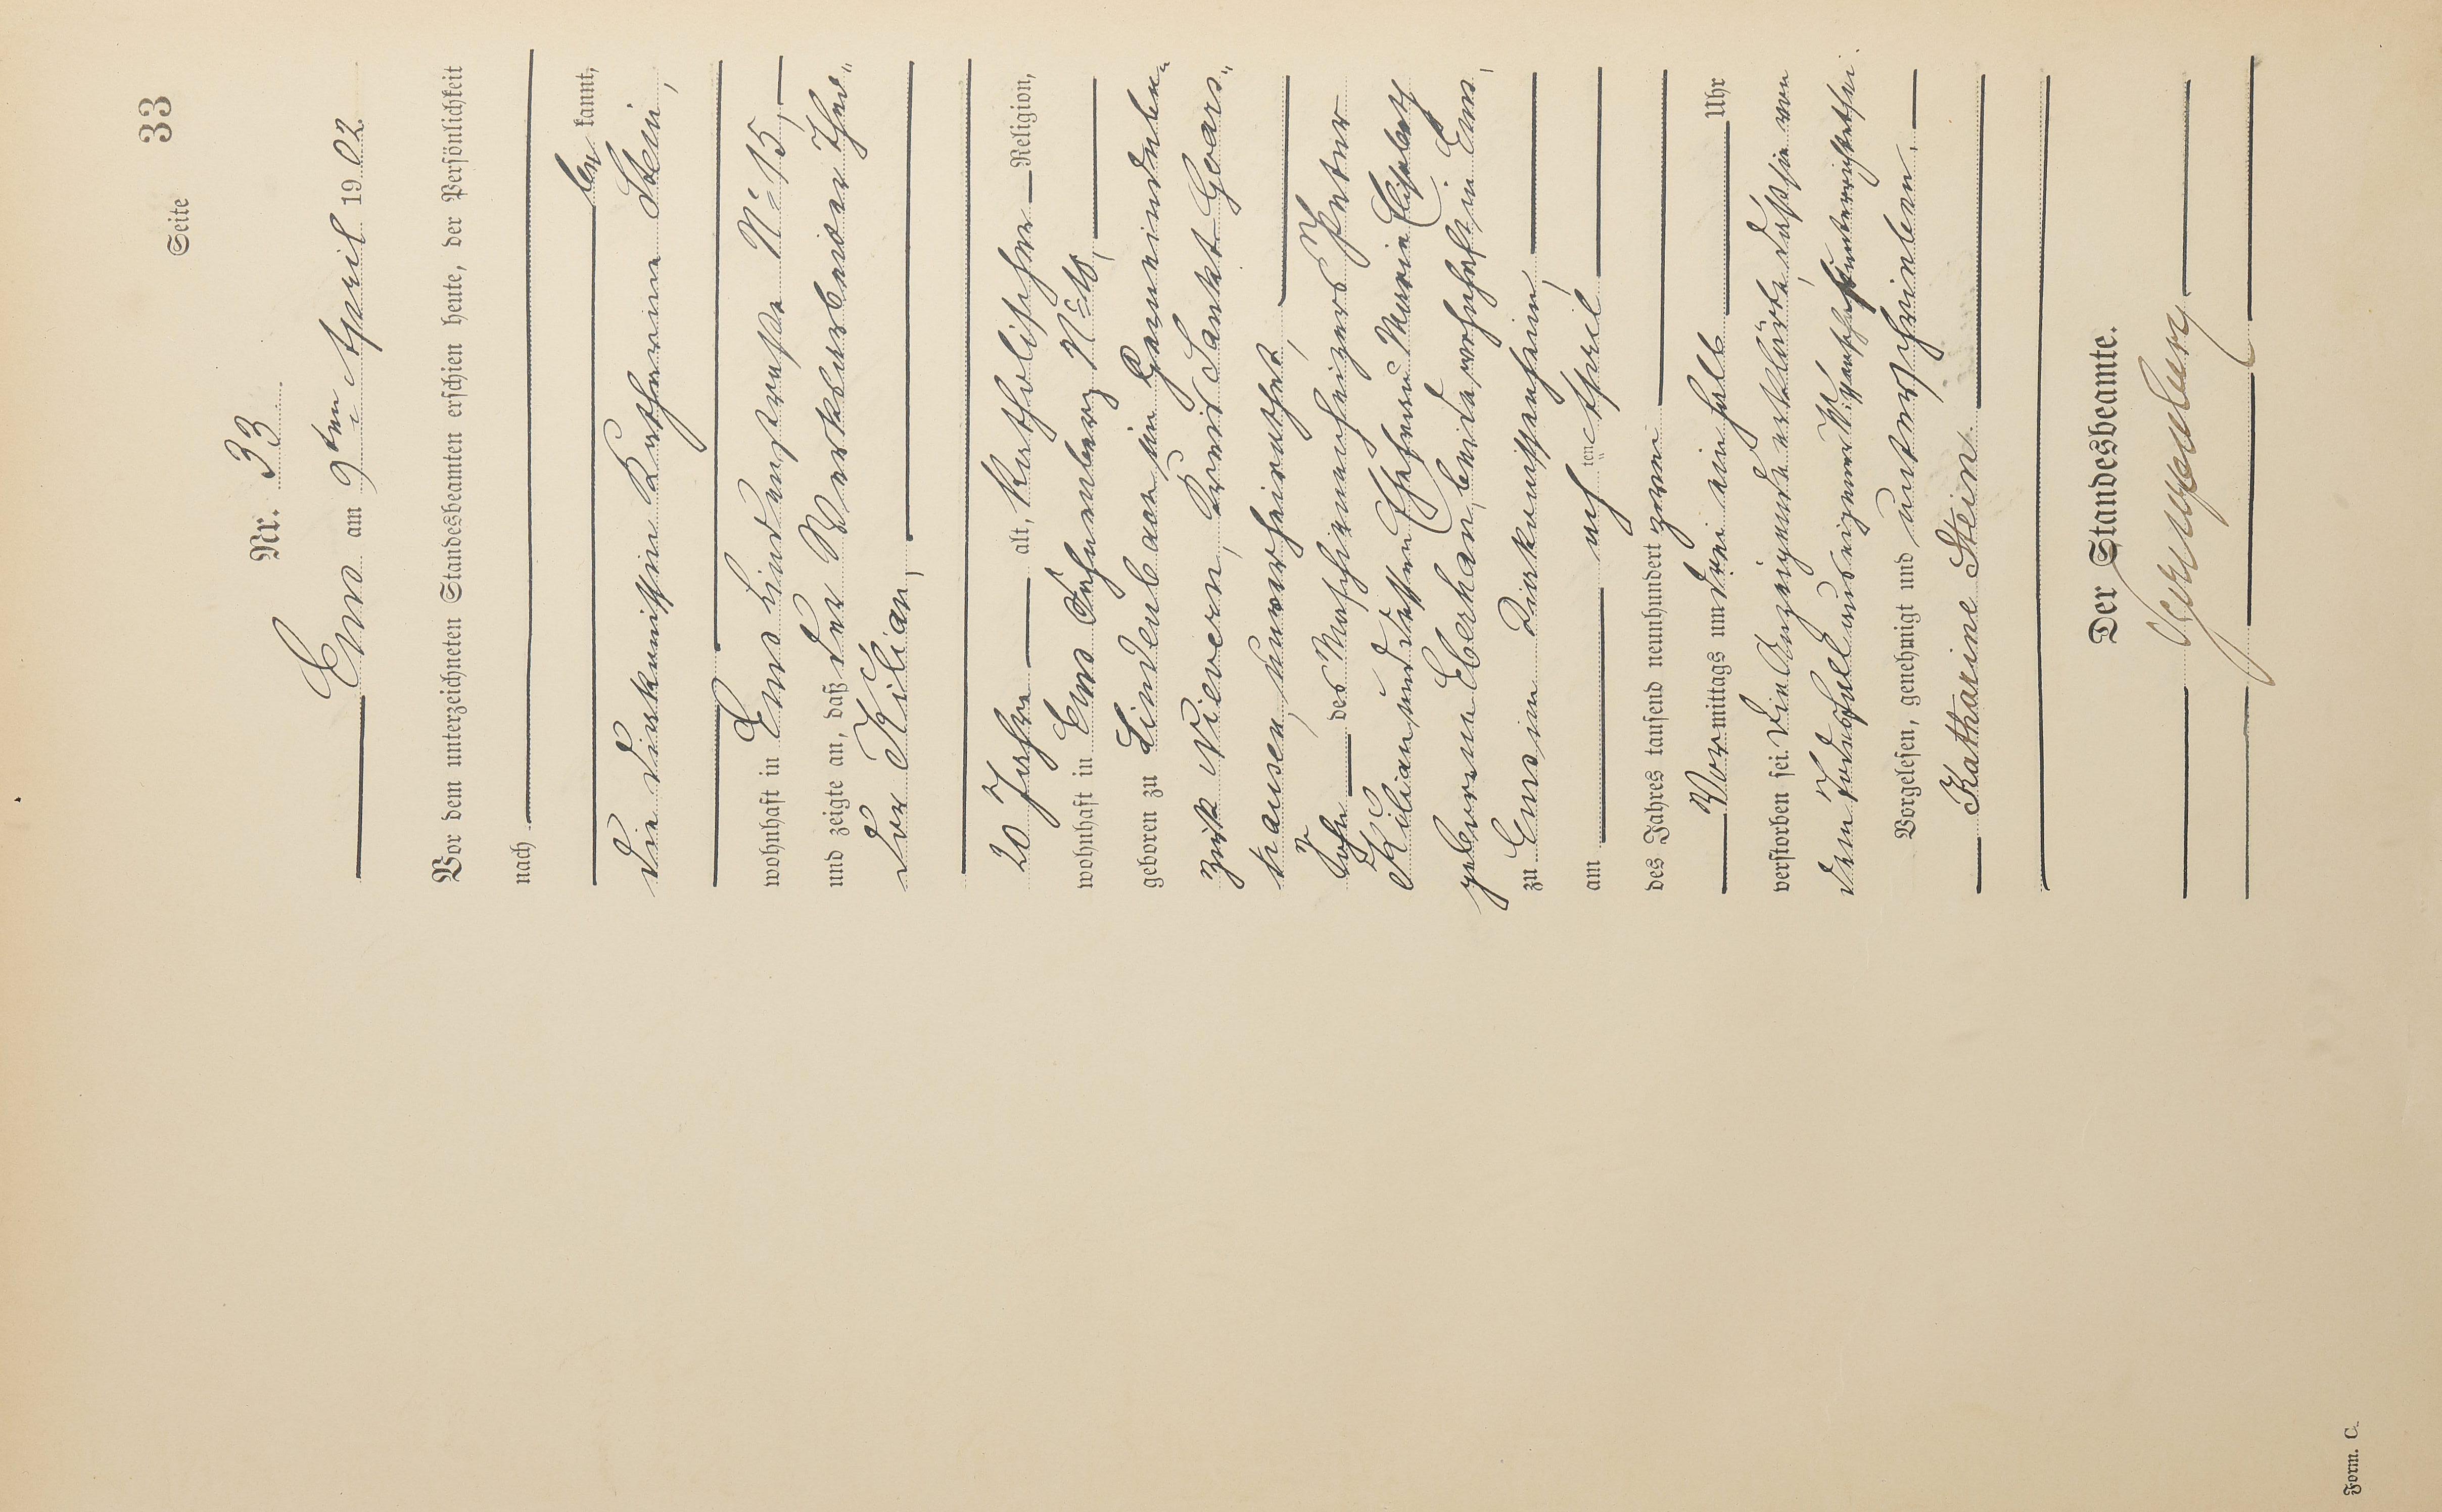 Seite 33
Nr. 33
Ems am 9ten April 1902
Vor dem unterzeichneten Standesbeamten erschien heute, der Persönlichkeit
nach
be kannt,
die Diakonissin Katharina Stein,
wohnhaft in Ems Lindenstraße No 15,
und zeigte an, daß der Werkarbeiter Theo"
dor Kilian,
20 Jahre alt, katholischer Religion,
wohnhaft in Ems
geboren zu Lindenbach, Gemeindebe"
zirk Nievern, Kreis Sankt Goars"
hausen, unverheirathet,
Sohn des Maschinenheizers Peter
Kilian und dessen Ehefrau Maria Elisabeth
geborene Eberhan, beide wohnhaft in Ems,
zu Ems im Diakonissenheim,
am achten April
des Jahres tausend neunhundert zwei
Vormittags um drei ein halb Uhr
verstorben sei. Die Anzeigende erklärte, daß sie von
dem Todesfall aus eigener Wissenschaft unterrichtet sei.
Vorgelesen, genehmigt und unterschrieben.
Katharine Stein.
Der Standesbeamte.
Form. C.